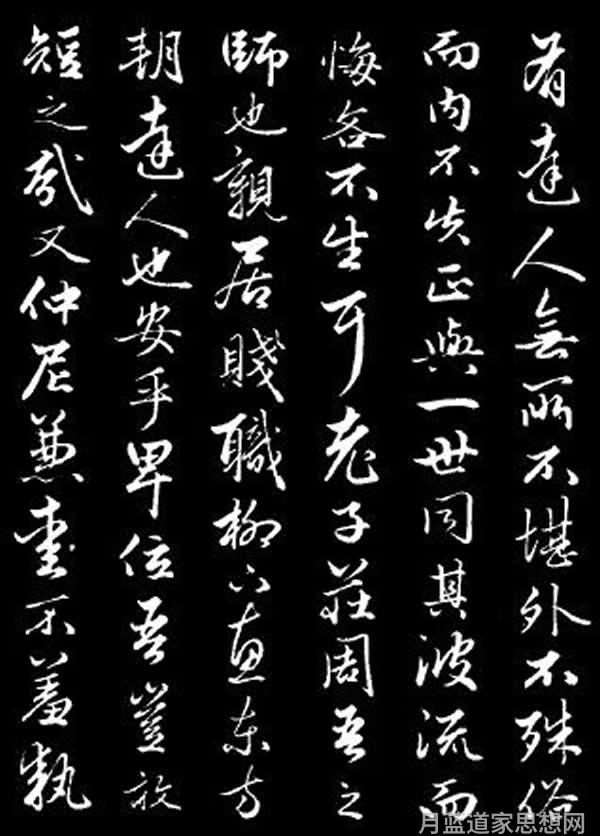 有達人無所不堪外不殊俗
而内不失正與一世同其波流而
悔吝不生耳老子莊周吾之
師也親居賤職柳下惠東方
朔達人也安乎卑位吾豈敢
短之哉又仲尼兼愛不羞執
月蓝道家思想网